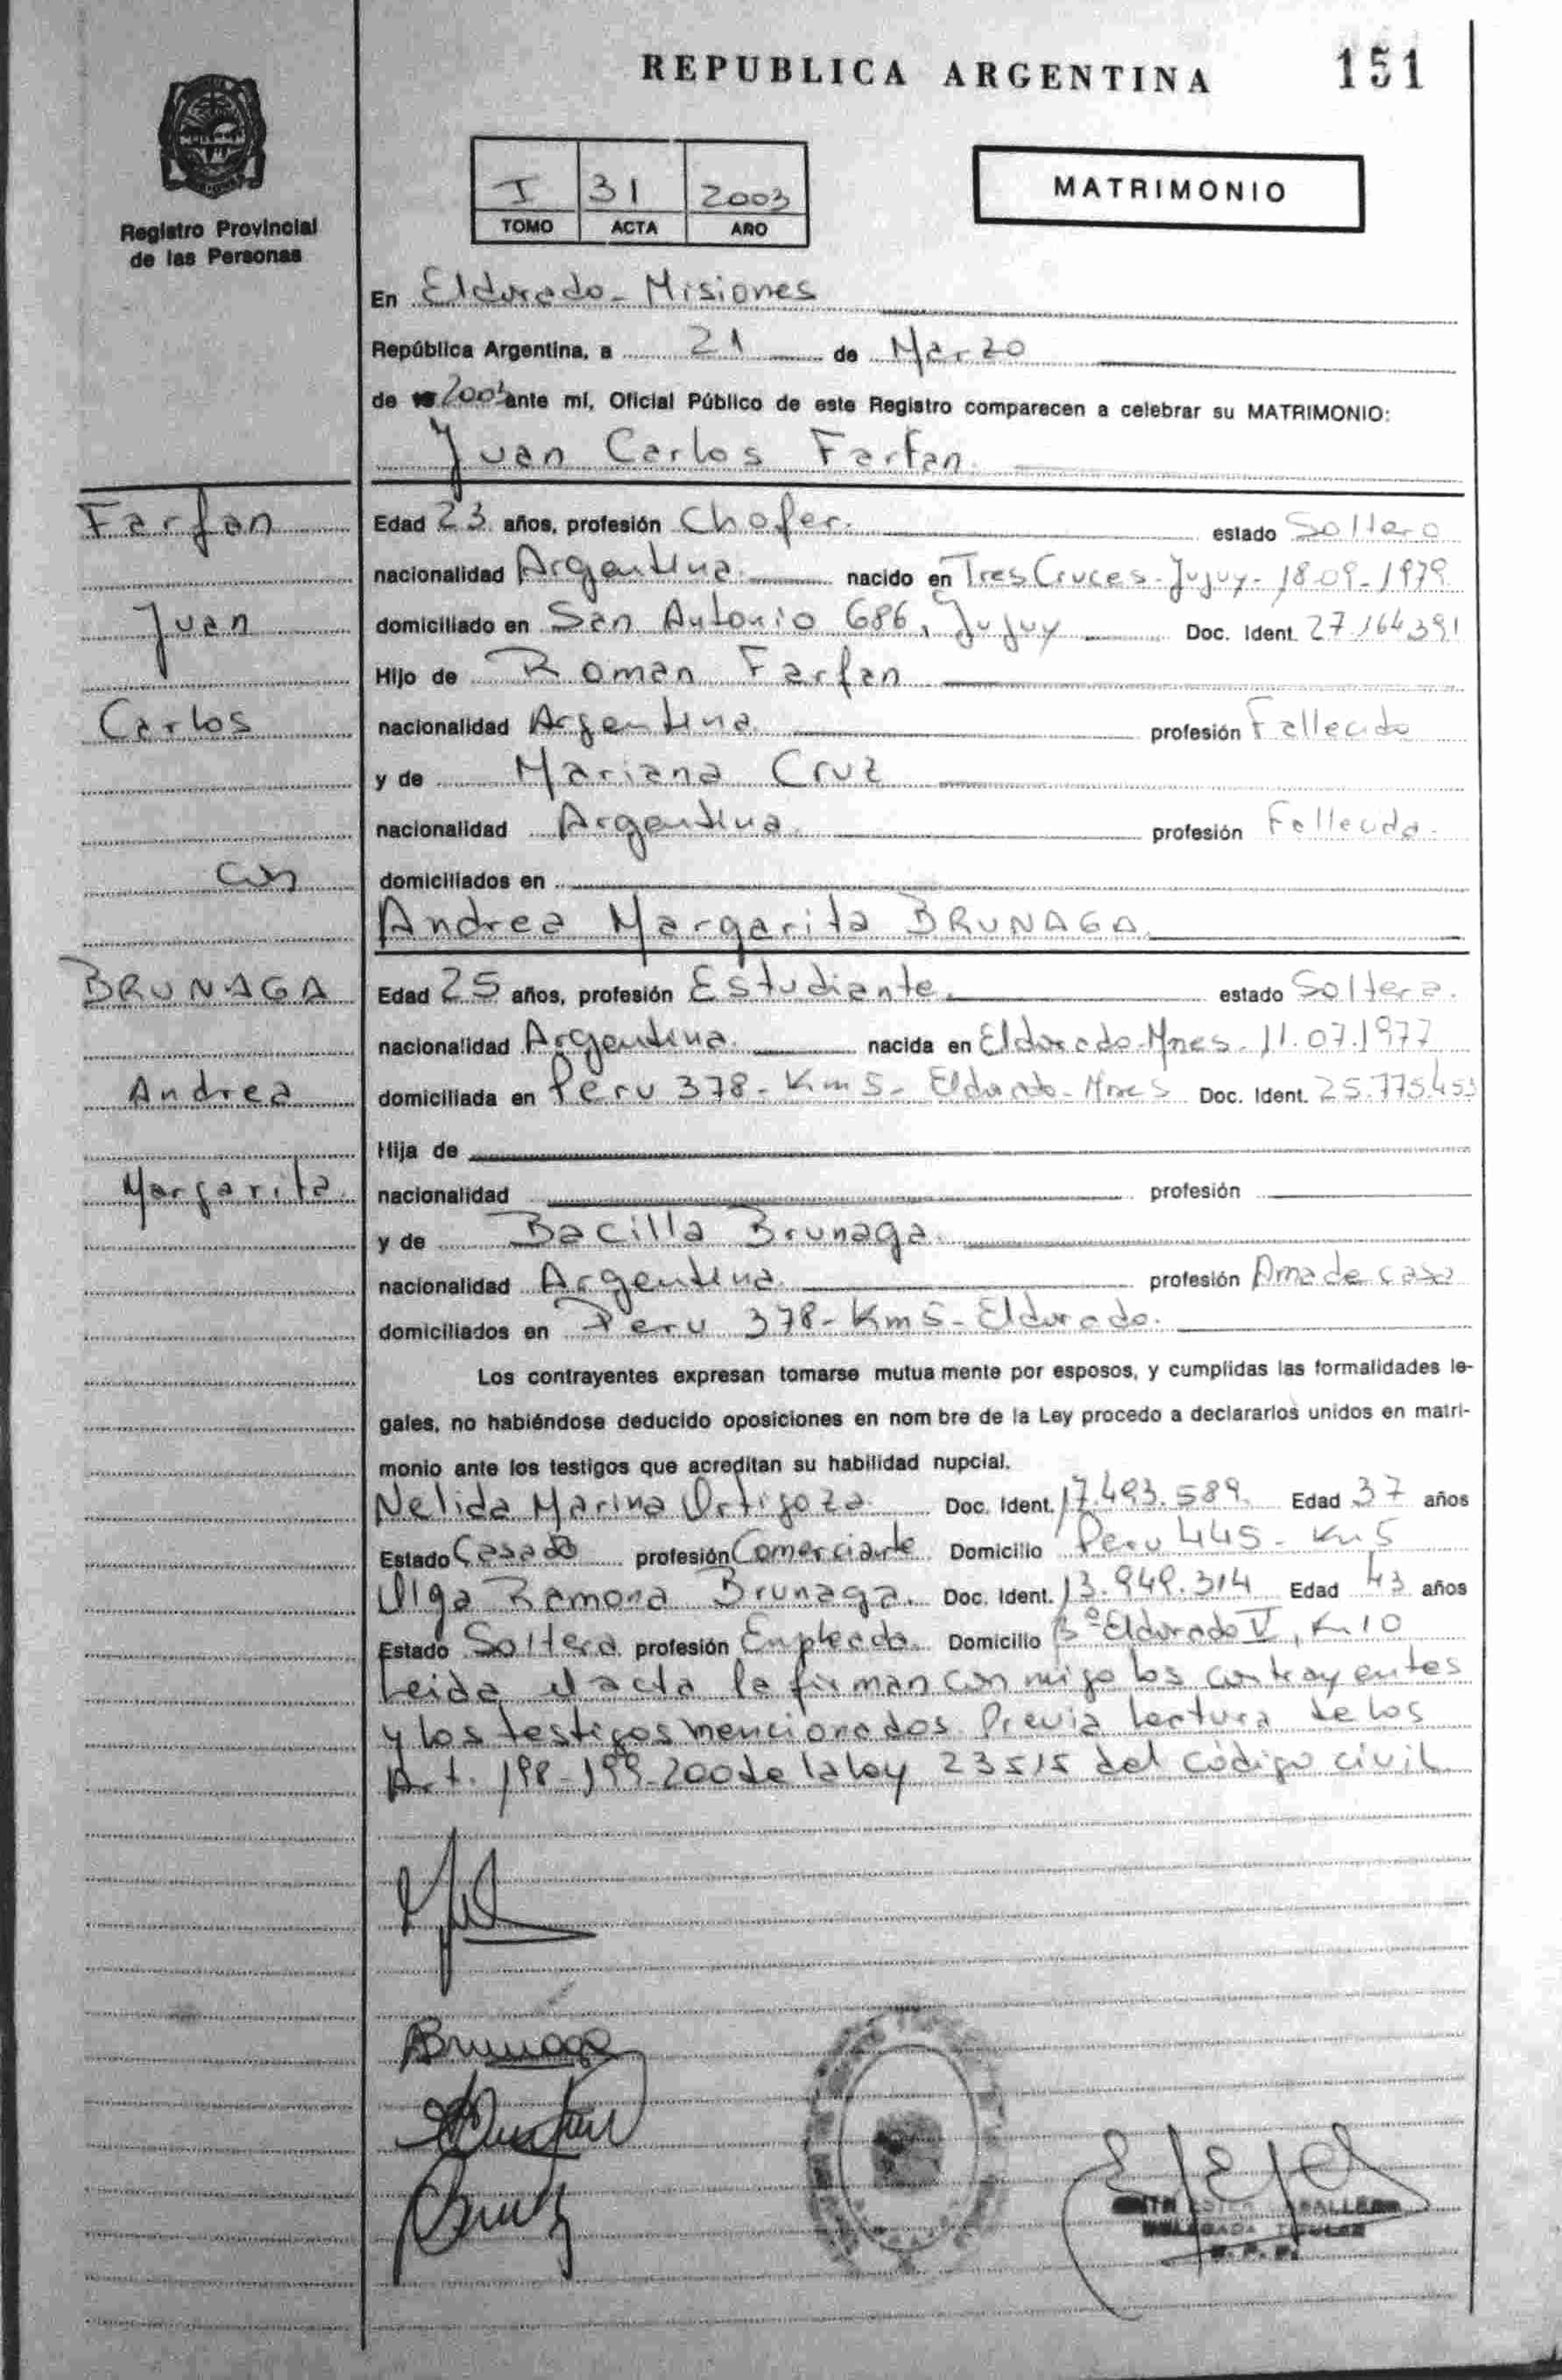 REPUBLICA ARGENTINA 151
I 31 2003
TOMO ACTA AÑO
MATRIMONIO
Registro Provincial
de las Personas
En Eldorado - Misiones
República Argentina, a 21 de Marzo
de 2003 ante mí, Oficial Público de este Registro comparecen a celebrar su MATRIMONIO:
Juan Carlos Farfan
Farfan
Juan
Carlos
con
BRUNAGA
Andrea
Margarita
Edad 23 años, profesión Chofer. estado Soltero
nacionalidad Argentina nacido en Tres Cruces - Jujuy - 18-09-1979
domiciliado en San Antonio 686, Jujuy Doc. Ident. 27.164.391
Hijo de Roman Farfan
nacionalidad Argentina profesión Fallecido
y de Mariana Cruz
nacionalidad Argentina profesión Fallecida
domiciliados en
Andrea Margarita BRUNAGA
Edad 25 años, profesión Estudiante. estado Soltera.
nacionalidad Argentina nacida en Eldorado-Mnes. 11.07.1977
domiciliada en Peru 378 - Km 5 - Eldorado - Mnes Doc. Ident. 25.775.453
Hija de
nacionalidad profesión
y de Bacilla Brunaga
nacionalidad Argentina profesión Ama de casa
domiciliados en Peru 378 - Km 5 - Eldorado.
Los contrayentes expresan tomarse mutua mente por esposos, y cumplidas las formalidades le-
gales, no habiéndose deducido oposiciones en nom bre de la Ley procedo a declararlos unidos en matri-
monio ante los testigos que acreditan su habilidad nupcial.
Nelida Marina Ortigoza Doc. Ident. 17.493.589 Edad 37 años
Estado Casado profesión Comerciante Domicilio Peru 445 - Km 5
Olga Ramona Brunaga. Doc. Ident. 13.949.314 Edad 43 años
Estado Soltera profesión Empleada Domicilio Bº Eldorado V, Km 10
Leida el acta la firman con migo los contrayentes
y los testigos mencionados. Previa lectura de los
Art. 198-199-200 de la ley 23515 del código civil
ABrunaga
ESTER CABALLERO
DELEGADA TITULAR
R. P. P.